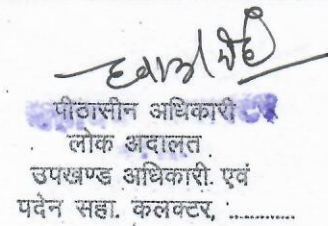 पीठासीन अधिकारी
लोक अदालत
उपखण्ड अधिकारी. एवं
पदेन सहा. कलक्टर, ..............